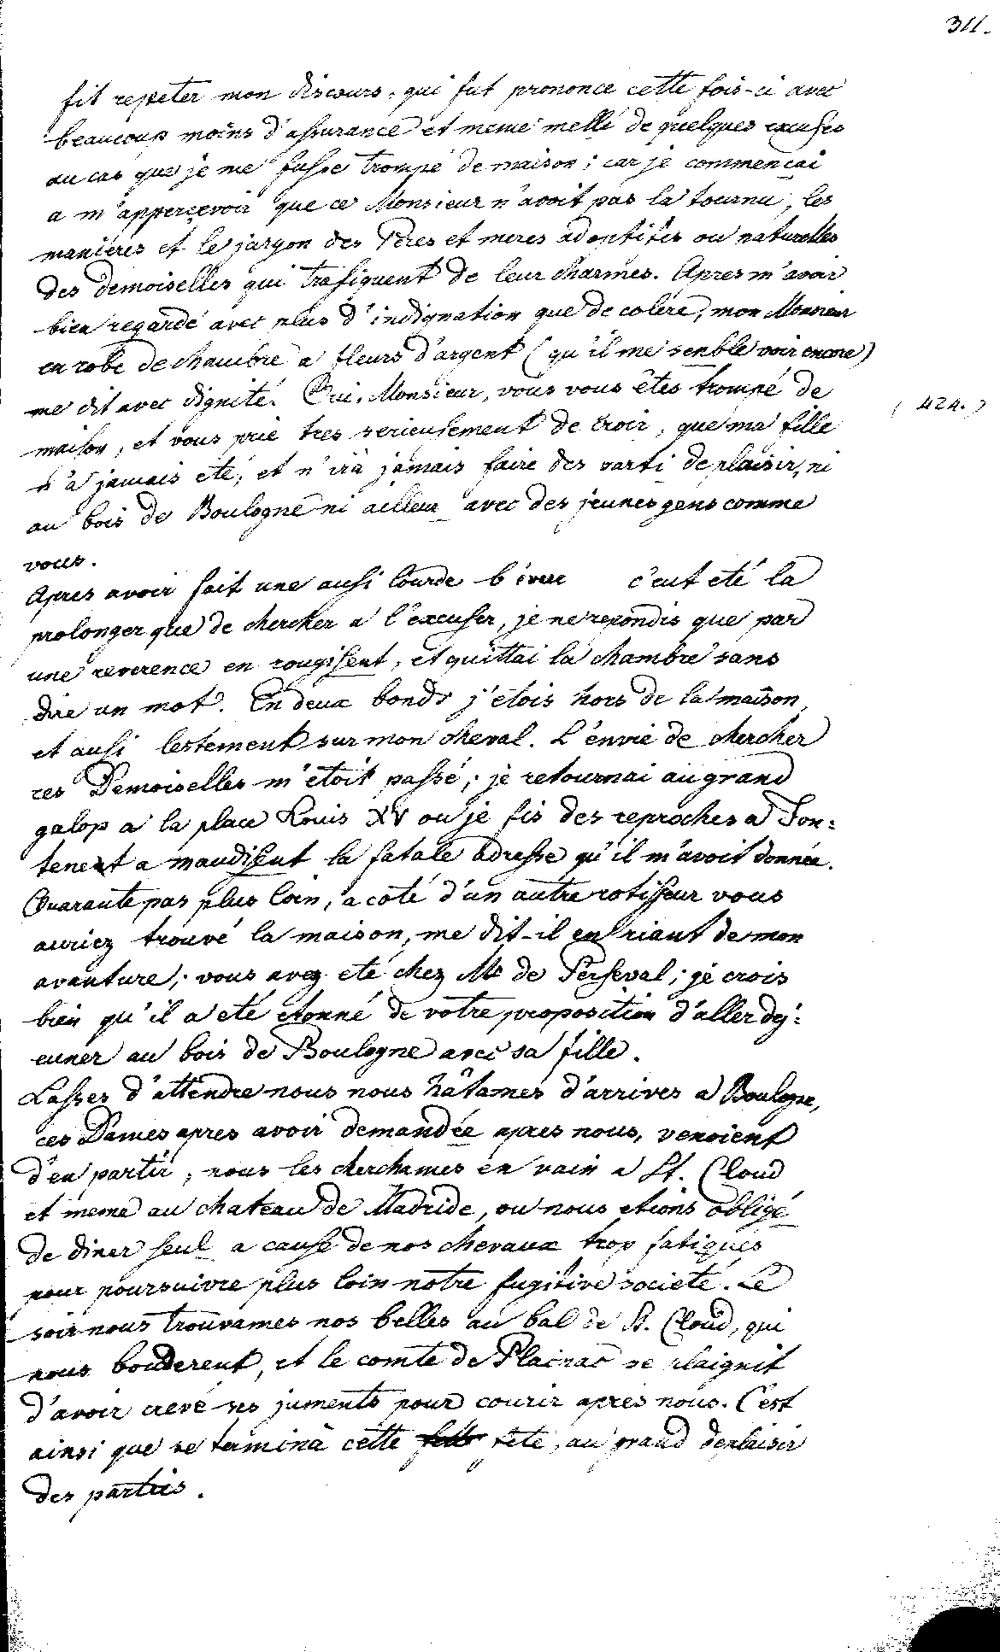 311.
fit repeter mon discours, qui fut prononcé cette fois-ci avec
beaucoup moins d'assurance et meme mellé de quelques excuses
au cas que je me fusse trompé de maison; car je commençai
a m'appercevoir que ce Monsieur n'avoit pas la tournu, les
manieres et le jargon des Peres et meres adoptifes ou naturelles
des demoiselles qui trafiquent de leur charmes. Apres m'avoir
bien regardé avec plus d'indignation que de colére, mon Monsieur
en robe de chambre a fleurs d'argent (qu'il me semble voir encore)
me dit avec dignité. Oui, Monsieur, vous vous êtes trompé de
( 424. )
maison, et vous prie tres serieusement de croir, que ma fille
n'a jamais eté, et n'irà jamais faire des parti de plaisir, ni
au bois de Boulogne ni ailleur avec des jeunes gens comme
vous.
Apres avoir fait une aussi lourde bévue c'eut eté la
prolonger que de chercher a l'excuser, je ne repondis que par
une reverence en rougissent, et quittai la chambre sans
dire un mot. En deux bonds j'etois hors de la maison,
et aussi lestement sur mon cheval. L'envie de chercher
ces Demoiselles m'etoit passé; je retournai au grand
galop a la place Louis XV ou je fis des reproches a Fon=
tenent a maudisent la fatale adresse qu'il m'avoit donnée.
Quarante pas plus loin, a coté d'un autre rotisseur vous
auriez trouvé la maison, me dit-il en riant de mon
avanture; vous avez eté chez Mr de Perseval; je crois
bien qu'il a eté etonné de votre proposition d'aller dej=
euner au bois de Boulogne avec sa fille.
Lasses d'attendre nous nous hâtames d'arriver a Boulogne,
ces Dames apres avoir demandée apres nous, venoient
d'en partir; nous les cherchames en vain a St. Cloud
et meme au chateau de Madride, ou nous etions obligé
de diner seul a cause de nos chevaux trop fatigués
pour poursuivre plus loin notre fugitive societé. Le
soir nous trouvames nos belles au bal de St. Cloud, qui
nous bouderent, et le comte de se plaignit
d'avoir crevé ses juments pour courir apres nous. C'est
ainsi que se terminà cette fête, au grand deplaisir
des parties.